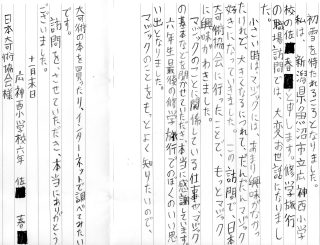 初雪を待たれるころとなりました。
私は、新潟県魚沼市立広神西小学
校の佐■春■と申します。修学旅行
の職場訪問では、大変お世話になりまし
た。
小さい時、マジックには、あまり興味がなかっ
たけれど、大きくなるにつれて、だんだんマジック
好きになっていきました。この訪問で、日本
奇術協会に行ったことで、もっとマジック
に興味がわきました。
マジックのことや、関係している仕事やマジック
の基本など
六年生最後の修学旅行でのぼくのいい思
い出となりました。
マジックのことを、もっとよく知りたいので、
奇術本を買ったり、インターネットで調べてみたい
です。
訪問をさせていただき、本当にありがとう
ございました。
十一月末日
広神西小学校六年 佐■春■
日本奇術協会様